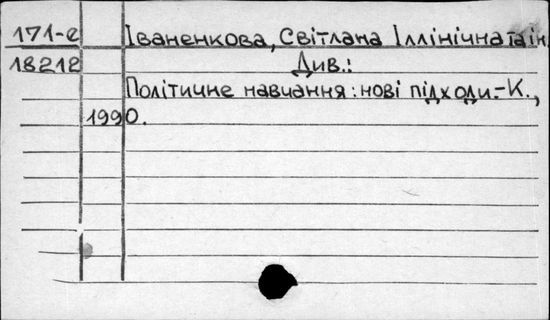 171-е Іваненкова, Світлана Іллінічна та ін.
18212 Див.:
Політичне навчання: нові підходи.-К.,
1990.